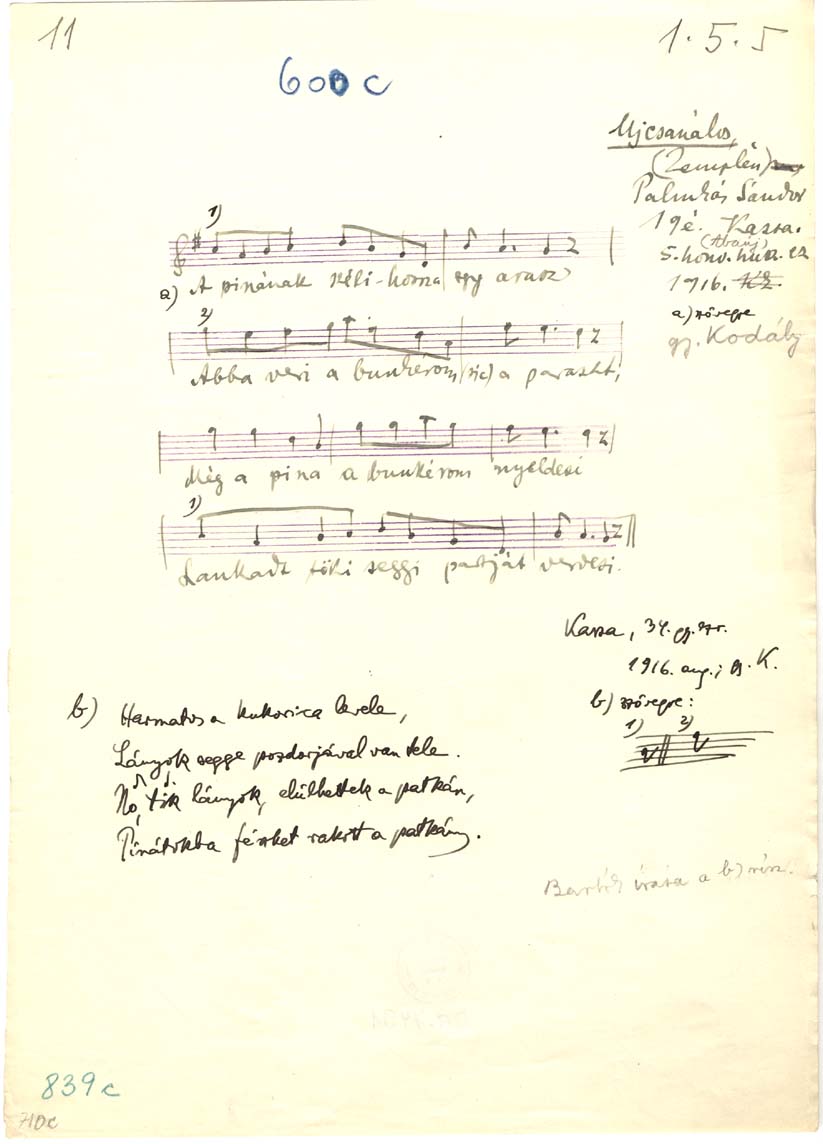 11
1.5.5
600 c
Ujcsanálos,
(Zemplén)
Palinkás Sándor
19é. Kassa.
(Abauj)
5. honv. husz. ez
1916.
a) szövegre
gy. Kodály
1)
a) A pinának széli-hossza egy arasz
2)
Abba veri a bunkérom (sic) a paraszt,
Még a pina a bunkérom nyeldesi
1)
Lankadt töki seggi partját verdesi.
Kassa, 34. gy. ezr.
1916. aug.; gy. K.
b) szövegre:
1) 2)
b) Harmatos a kukorica levele,
Lányok segge pozdorjával van tele.
No, tik lányok, elülhettek a patkán,
Pinátokba fészket rakott a patkány.
Bartók írása a b) rész.
839 c
710c